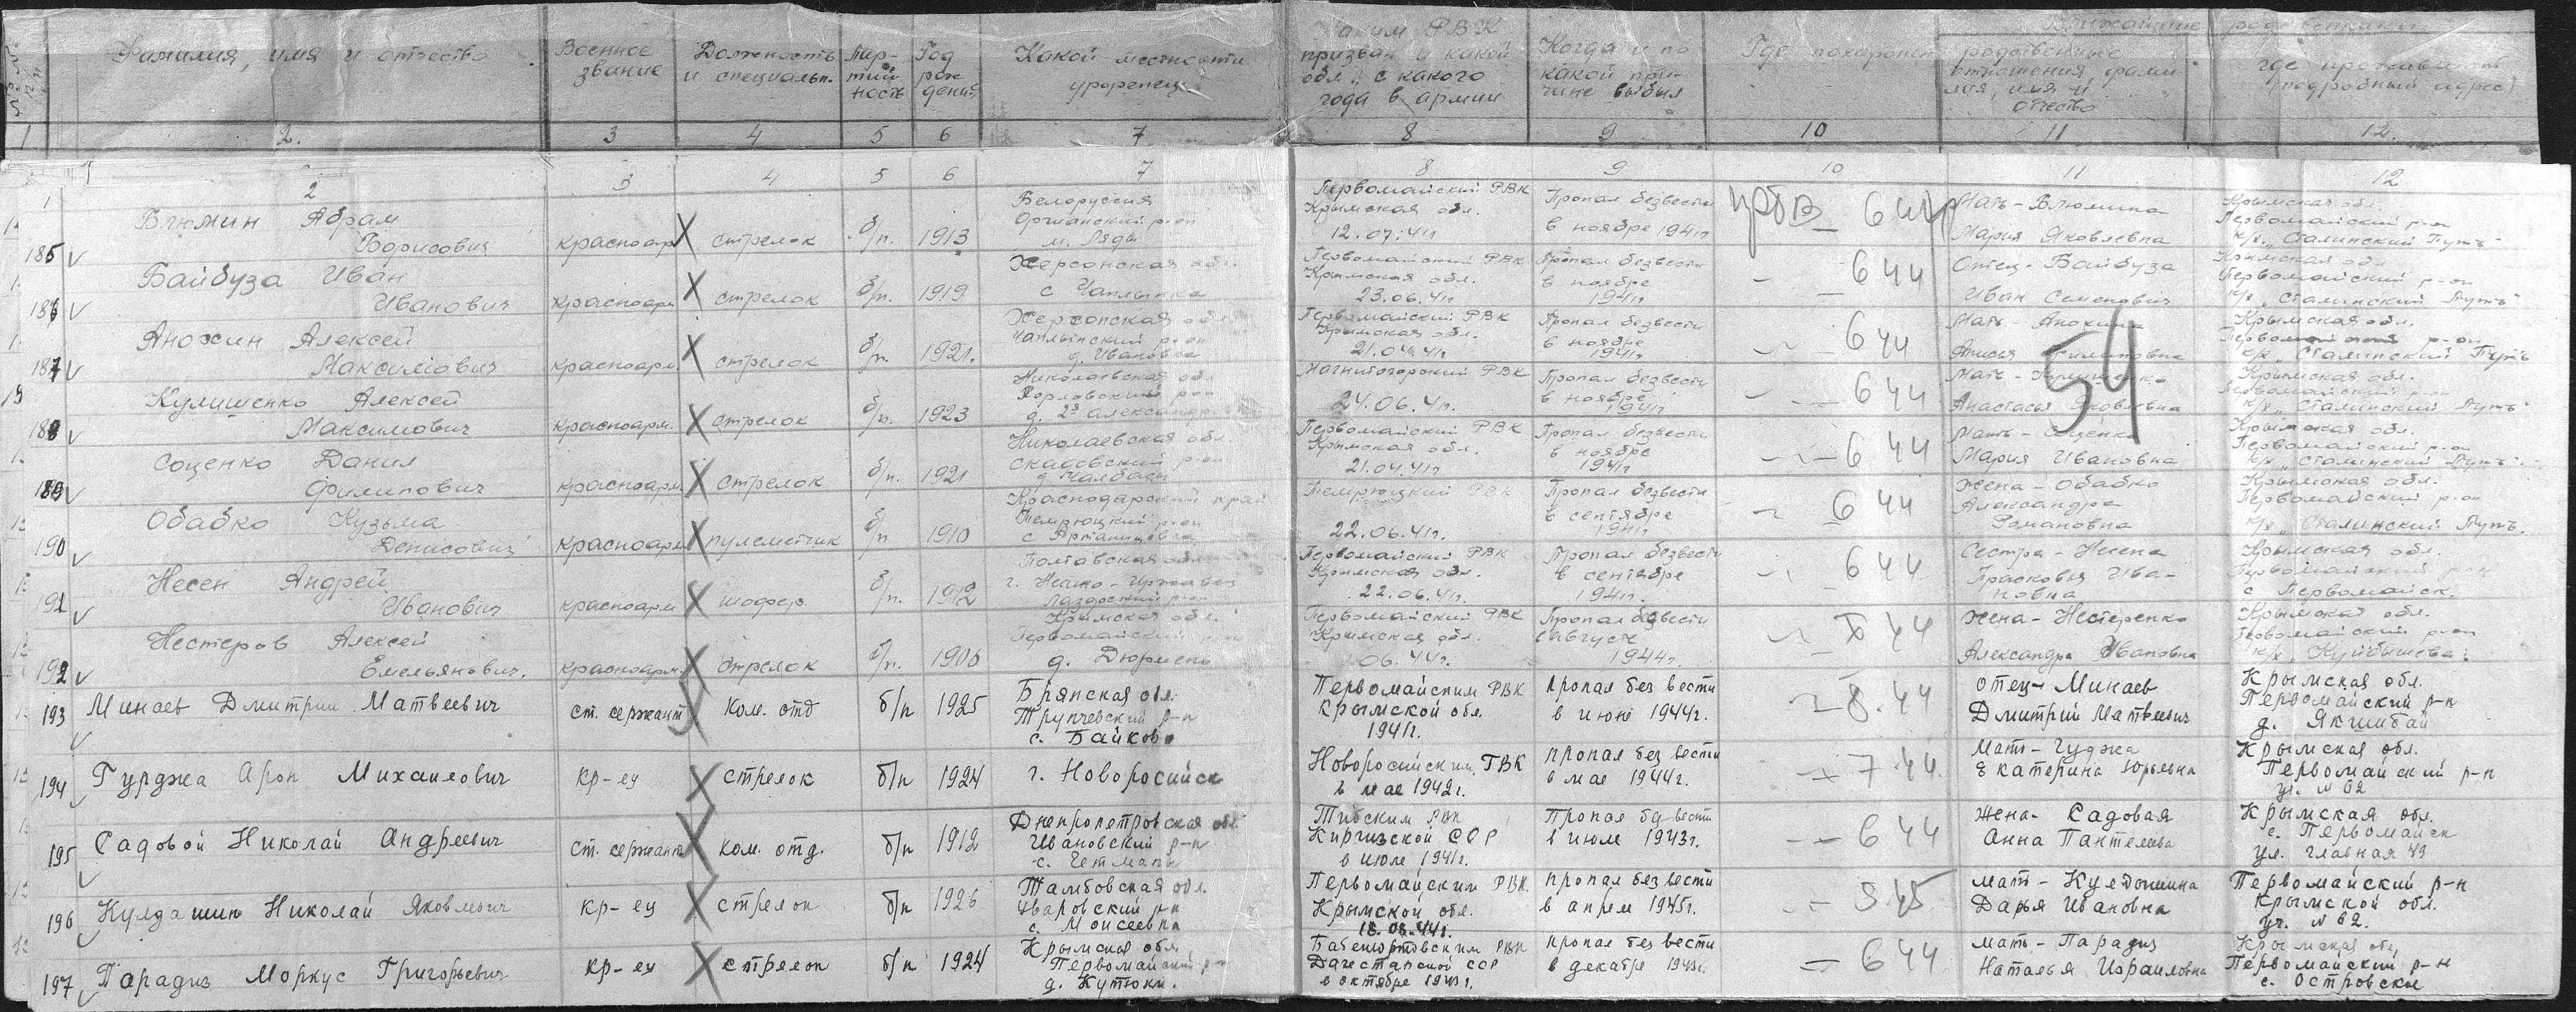 №№ п/п
Фамилия, имя и отчество
Военное звание
Должность и специальн.
Пар-тий ность
Год рож дения
Какой местности уроженец
Каким РВК призван и какой обл. с какого года в армии
Когда и по какой при-чине выбыл
Где похоронен
Ближайшие родственники
родственные отношения, фами-лия, имя и отчество
где проживают (подробный адрес)
1 2. 3 4 5 6 7 8 9 10 11 12.
1 2 3 4 5 6 7 8 9 10 11 12
185 Блюмин Абрам Борисович красноарм стрелок б/п. 1913 Белоруссия Оршанский р-он м. Ляды Первомайский РВК Крымская обл. 12.07.41г Пропал безвести в ноябре 1941г 644 Мать - Блюмина Мария Яковлевна Крымская обл. Первомайский р-он к/х „Сталинский Путь"
186 Байбуза Иван Иванович красноарм стрелок б/п. 1919 Херсонская обл. с Чаплынка Первомайский РВК Крымская обл. 23.06.41г Пропал безвести в ноябре 1941г 644 Отец - Байбуза Иван Семенович Крымская обл Первомайский р-он к/х „Сталинский Путь"
187 Анохин Алексей Максимович красноарм. стрелок б/п. 1921. Херсонская обл Чаплынский р-он д. Ивановка Первомайский РВК Крымская обл. 21.04.41г. Пропал безвести в ноябре 1941г. 644 Мать - Анохина Крымская обл. Первомайский р-он к/х „Сталинский Путь
54
188 Кулишенко Алексей Максимович красноарм. стрелок б/п. 1923 Николаевская обл Магнитогорский РВК 24.06.41г. Пропал безвести в ноябре 1941г 644 Мать - Анастасья Яковлевна Крымская обл. Первомайский р-он к/х „Сталинский Путь"
189 Соценко Данил Филипович красноарм. стрелок б/п. 1921 Николаевская обл. Скадовский р-он Первомайский РВК Крымская обл. 21.04.41г Пропал безвести в ноябре 1941г 644 Мать - Соценко Мария Ивановна Крымская обл. Первомайский р-он к/х „Сталинский Путь".
190 Обабко Кузьма Денисович красноарм пулеметчик б/п 1910 Краснодарский край Темрюцкий р-он Темрюцкий РВК 22.06.41г. Пропал безвести в сентябре 1941г. 644 Жена - Обабко Александра Романовна Крымская обл. Первомайский р-он к/х „Сталинский Путь.
191 Несен Андрей Иванович красноарм шофер б/п. 1912 Полтавская обл Первомайский РВК Крымская обл. 22.06.41г. Пропал безвести в сентябре 1941г. 644 Сестра - Несена Прасковья Ива-новна Крымская обл. Первомайский р-он с Первомайск.
192 Нестеров Алексей Емельянович. красноарм. стрелок б/п. 1906 Крымская обл. Первомайский р-он д. Дюрмень Первомайский РВК Крымская обл. 06.44г. Пропал безвести август 1944г. 44 Жена - Нестеренко Александра Ивановна Крымская обл. Первомайский р-он к/х „Куйбышева"
193 Минаев Дмитрий Матвеевич ст. сержант Ком. отд б/п 1925 Брянская обл. Трупчевский р-н с. Байково Первомайским РВК Крымской обл. 1941г. пропал без вести в июне 1944г. 8.44 отец - Минаев Дмитрий Матвеевич Крымская обл. Первомайский р-н д. Якшибай
194 Гурджа Арон Михаилович кр-ец стрелок б/п 1924 г. Новоросийск Новоросийским ГВК в мае 1942г. пропал без вести в мае 1944г. 7 44. мать - Гуджа Екатерина Юрьевна Крымская обл. Первомайский р-н уч. № 62
195 Садовой Николай Андреевич ст. сержант ком. отд. б/п 1912 Днепропетровская обл Ивановский р-н с. Гетманы Киргизской ССР в июле 1941г. Пропал без вести в июле 1943г. 644 жена - Садовая Анна Пантелеева Крымская обл. с. Первомайск ул. главная 49
196 Кулдашин Николай Яковлевич кр-ец стрелок б/п 1926 Тамбовская обл. Уваровский р-н с. Моисеевка Первомайским РВК Крымской обл. 18.08.44г. пропал без вести в апреле 1945г. 9.45. мать - Кулдошина Дарья Ивановна Первомайский р-н Крымской обл. уч. № 62.
197 Парадиз Моркус Григорьевич кр-ец стрелок б/п 1924 Крымская обл Первомайский р-н д. Кутюки. Бабеюртовским РВК Дагестанской ССР в октябре 1943г. пропал без вести в декабре 1943г. 644 мать - Парадиз Наталья Израиловна Крымская обл, Первомайский р-н с. Островское